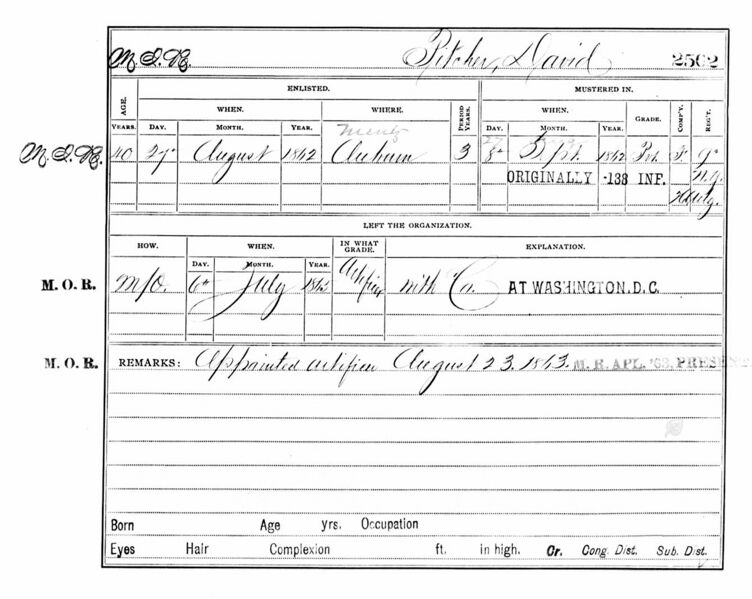 M.I.R. Pitcher, David 2502
ENLISTED. MUSTERED IN.
AGE. WHEN. WHERE. PERIOD YEARS. WHEN. GRADE. COMP'Y. REG'T.
YEARS. DAY. MONTH. YEAR. DAY. MONTH. YEAR.
Mentz
M.I.R. 40 27 August 1862 Auburn 3 8 Sept. 1862 Pvt. F 9
ORIGINALLY -138 INF. N.Y.
H Arty.
LEFT THE ORGANIZATION.
HOW. WHEN. IN WHAT GRADE. EXPLANATION.
DAY. MONTH. YEAR.
M. O. R. M/O. 6 July 1865 Artificer with Co. AT WASHINGTON. D. C.
M. O. R. REMARKS: Appointed artificer August 23. 1863. M. R. APL. '63, PRESENT
Born Age yrs. Occupation
Eyes Hair Complexion ft. in high. Or. Cong. Dist. Sub. Dist.